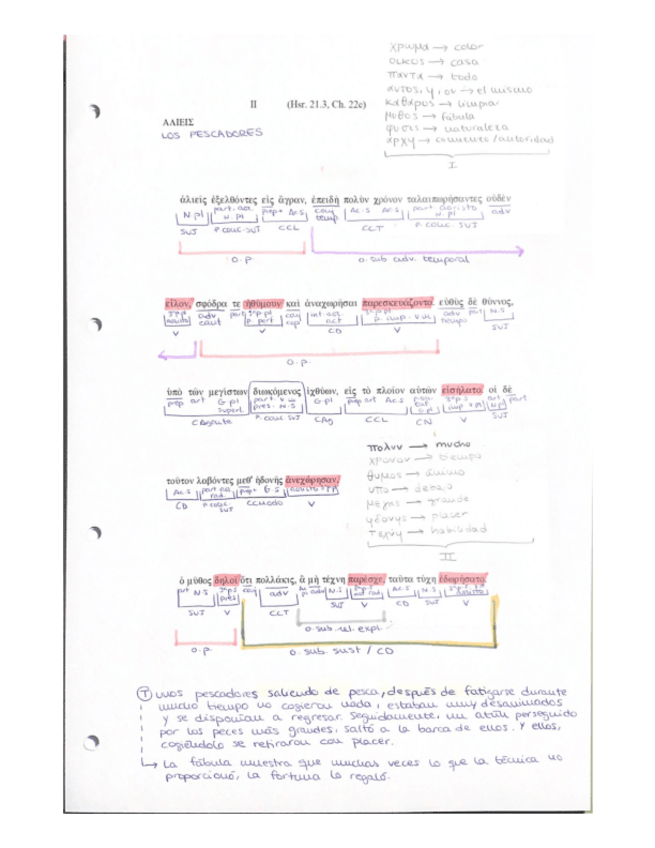 χρωμα → color
οικος → casa
παντα → todo
αυτος, η, ον → el mismo
καθαρος → limpiar
μυθος → fábula
φυσις → naturaleza
αρχη → comienzo / autoridad
I
II (Hsr. 21.3, Ch. 22c)
ΑΛΙΕΙΣ
LOS PESCADORES
ἁλιεῖς ἐξελθόντες εἰς ἄγραν, ἐπειδὴ πολὺν χρόνον ταλαιπωρήσαντες οὐδὲν
N.pl part. aor. N.pl prep + Ac.S conj temp. Ac.S Ac.S part aoristo N.pl adv
SUJ P. conc. SUJ CCL CCT P. conc. SUJ
O.P. O. sub. adv. temporal
εἷλον, σφόδρα τε ἠθύμουν καὶ ἀναχωρῆσαι παρεσκευάζοντο. εὐθὺς δὲ θύννος,
V V CD V SUJ
O.P.
ὑπὸ τῶν μεγίστων διωκόμενος ἰχθύων, εἰς τὸ πλοῖον αὐτῶν εἰσήλατο. οἱ δὲ
prep art G.pl superl. part. pres. N.S G.pl prep art Ac.S
P. conc SUJ CAg CCL CN V SUJ
πολυν → mucho
χρονον → tiempo
θυμος → ánimo
υπο → debajo
μεγας → grande
ηδονης → placer
τεχνη → habilidad
II
τοῦτον λαβόντες μεθ' ἡδονῆς ἀνεχώρησαν.
CD P. conc. SUJ CCModo V
ὁ μῦθος δηλοῖ ὅτι πολλάκις, ἃ μὴ τέχνη παρέσχε, ταῦτα τύχη ἐδωρήσατο.
SUJ V CCT SUJ V CD SUJ V
O. sub. rel. expl.
O.P. O. sub. sust / CD
T unos pescadores saliendo de pesca, después de fatigarse durante
mucho tiempo no cogieron nada, estaban muy desanimados
y se disponían a regresar. Seguidamente, un atún perseguido
por los peces más grandes, saltó a la barca de ellos. Y ellos,
cogiéndolo se retiraron con placer.
↳ La fábula muestra que muchas veces lo que la técnica no
proporcionó, la fortuna lo regaló.